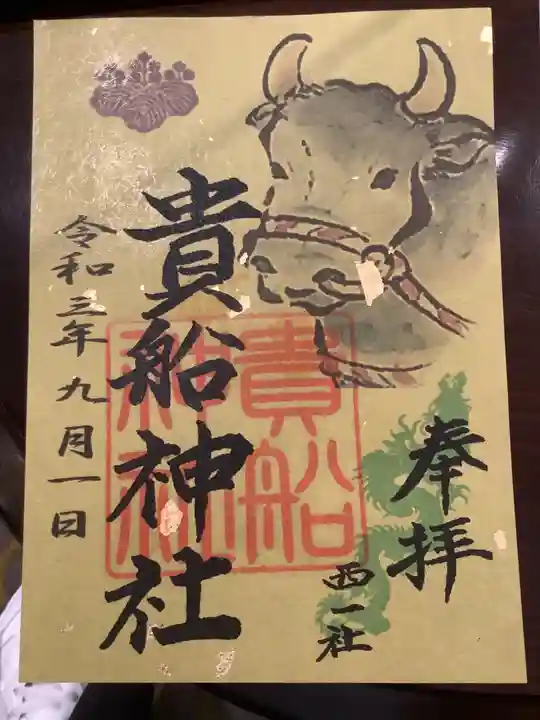 奉拝
西一社
貴船神社
貴船
神社
令和三年九月一日